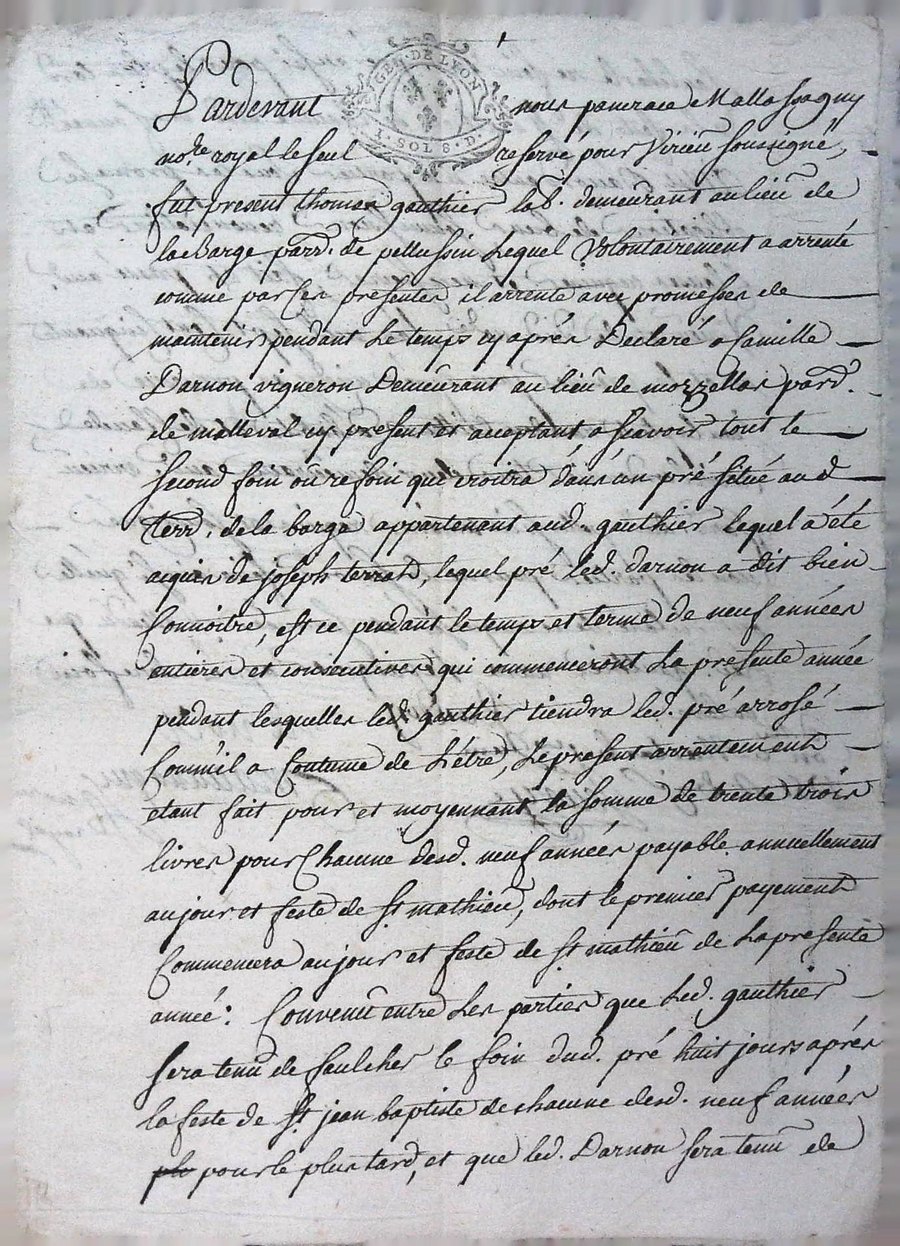 GEN. DE LYON
1. SOL 8. D.
Pardevant nous pancrace Mallassagny
no.re royal le seul reservé pour Virieu soussigné,
fut present thomas gauthier lab. demeurant au lieu de
la Barge parr. de pellussin Lequel Volontairement a arrenté
comme par ces presentes il arrente avec promesses de
maintenir pendant Le temps cy après Declaré a Camille
Darnon vigneron Demeurant au lieu de mozzellas parr.
de malleval cy present et acceptant a scavoir tout le
second foin oû refoin qui croitra dans un pré situé aud
terr. de la barge appartenant aud. gauthier lequel a été
acquis de joseph terrat, lequel pré led. darnon a dit bien
Connoitre, est ce pendant le temps et terme de neuf années
entieres et consecutives qui commenceront La presente année
pendant lesquelles led. gauthier tiendra led. pré arrosé
Comm'il a Coutume de L'étre, Le present arrentement
etant fait pour et moyennant la somme de trente trois
livres pour Chacune desd. neuf années payable annuellement
au jour et feste de St mathieu, dont le premier payement
Commencera au jour et feste de St mathieu de La presente
année: Convenû entre Les parties que Led. gauthier
sera tenû de faulcher le foin dud. pré huit jours aprés
la feste de St jean baptiste de chacune desd. neuf années
plu pour le plus tard, et que led. Darnon sera tenû de